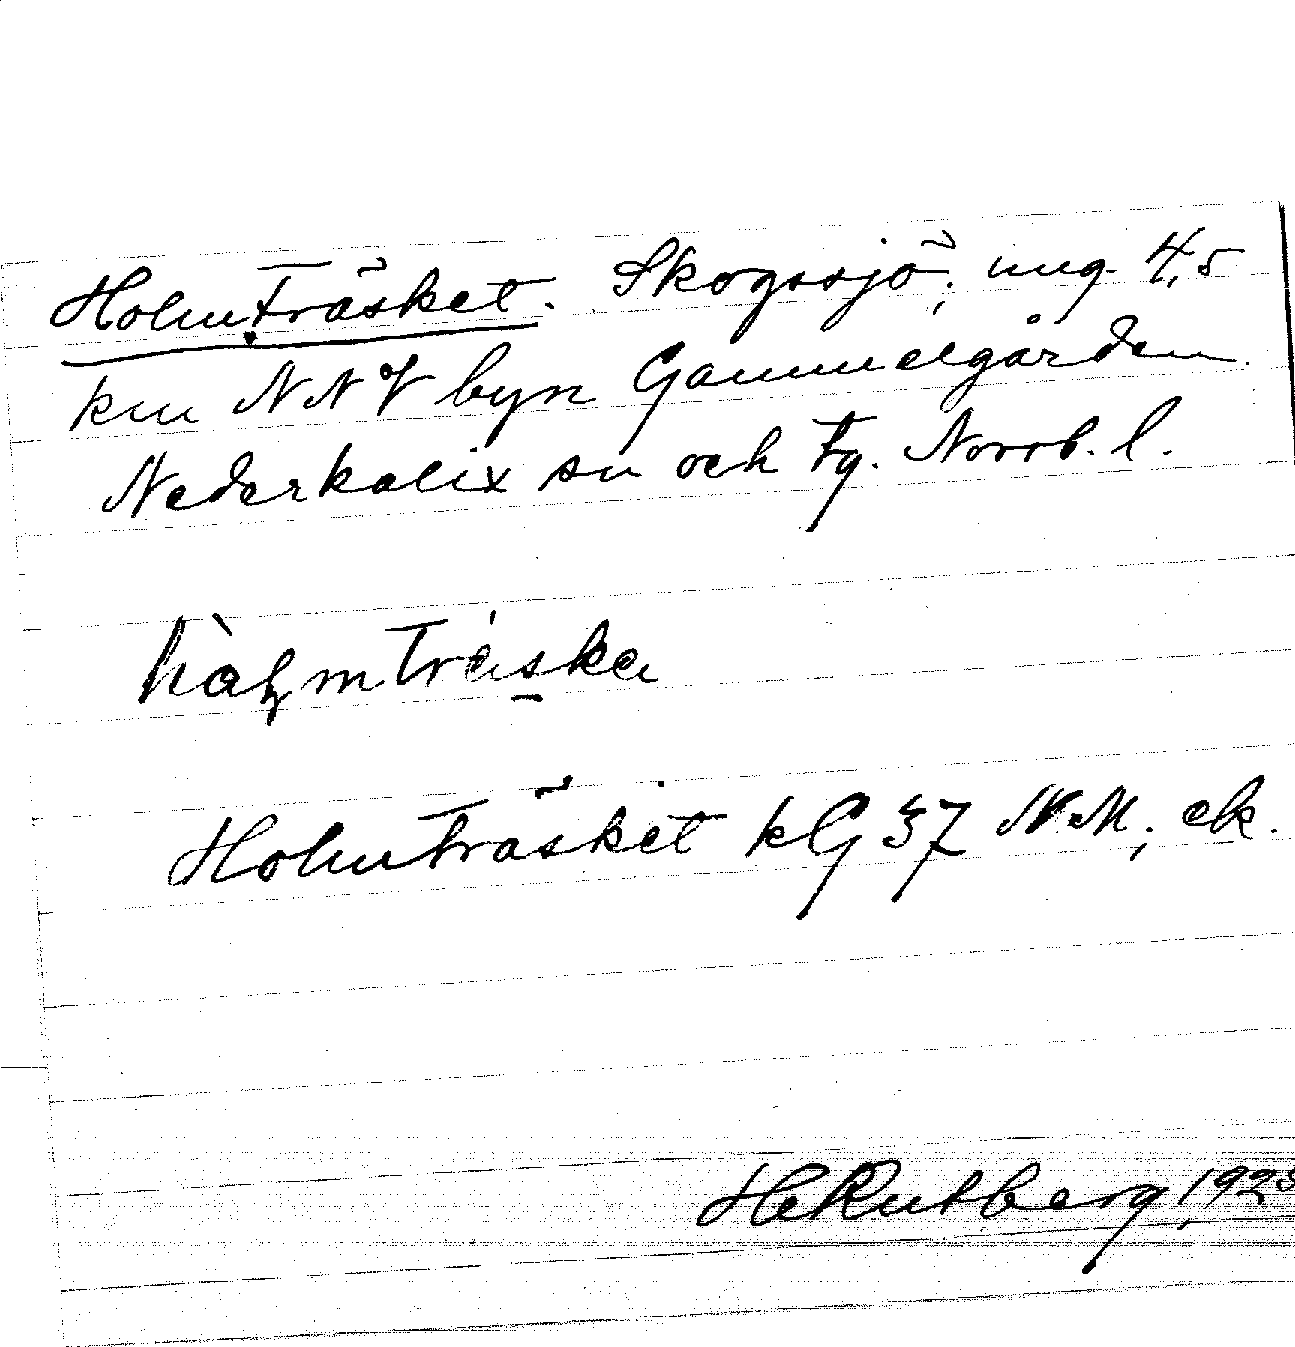 Holmträsket. Skogssjö, ung. 4,5
km NNV byn Gammelgården
Nederkalix sn och tg. Norrb. l.
Holmträsket kG 37 NM, ek.
HeRutberg 1923